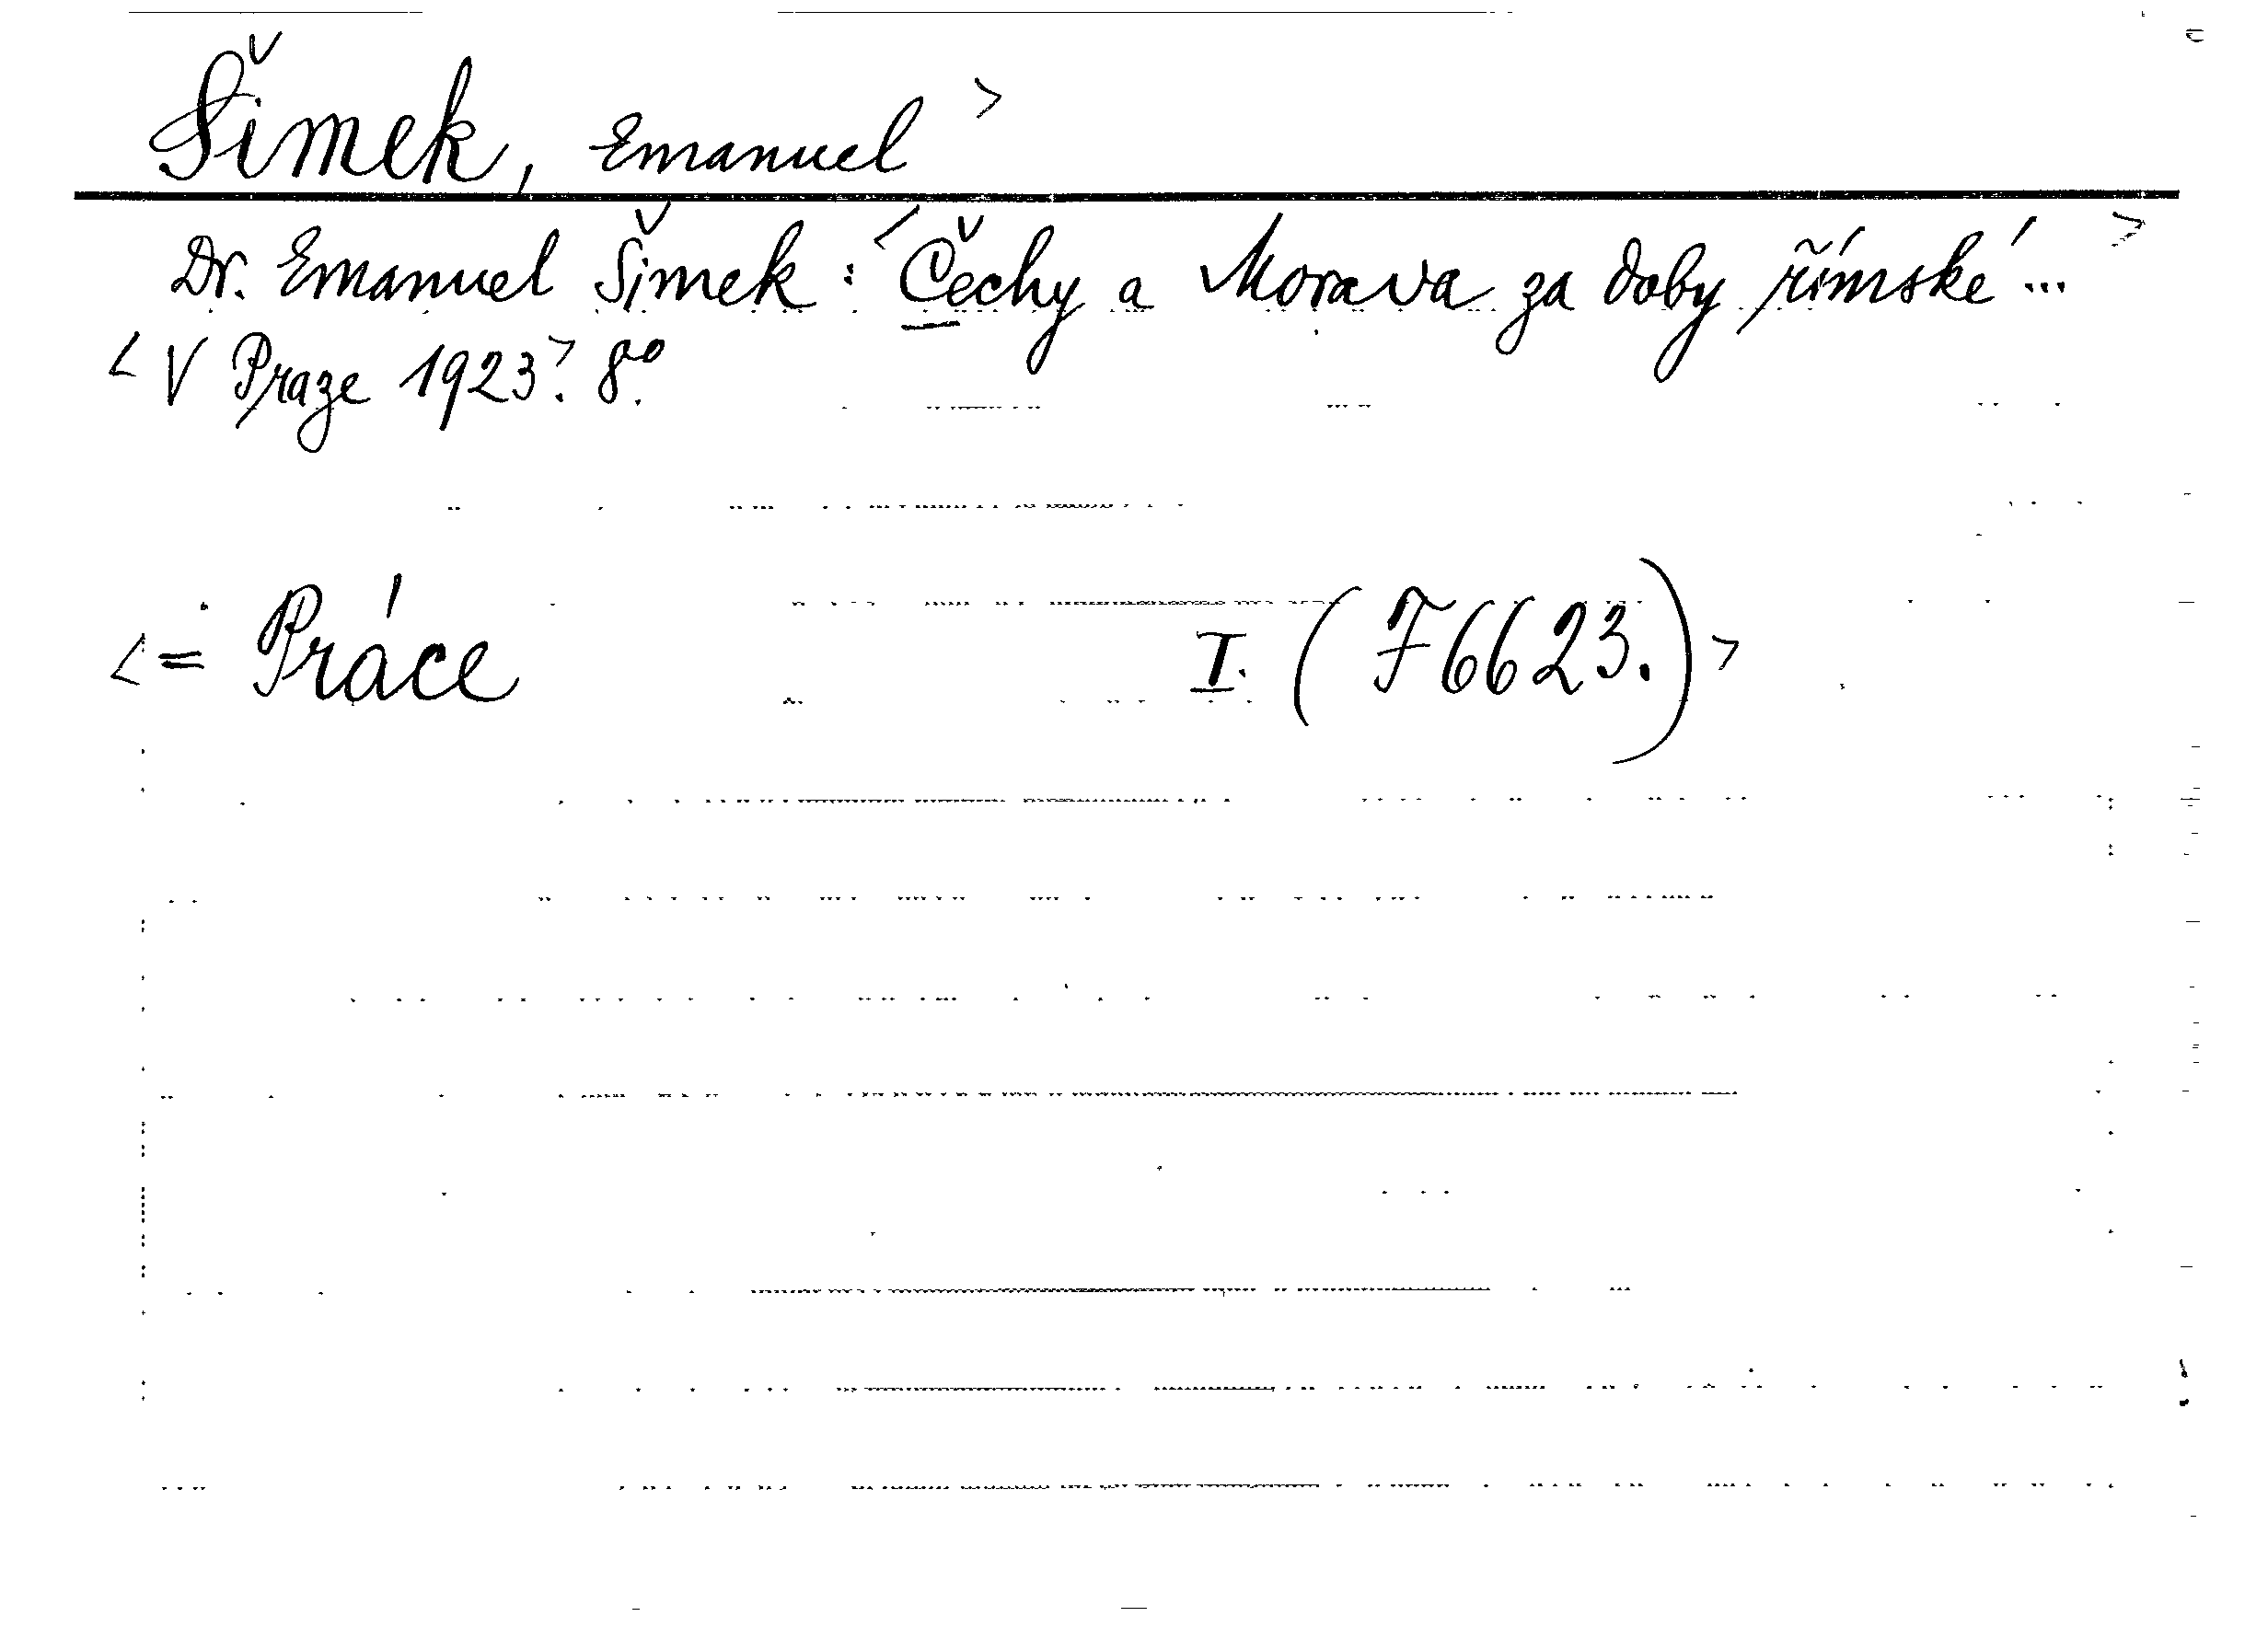 Šimek, Emanuel >
Dr. Emanuel Šimek: <Čechy a Morava za doby římské... >
< V Praze 1923>. 8º.
<= Práce I. (F6623.)>